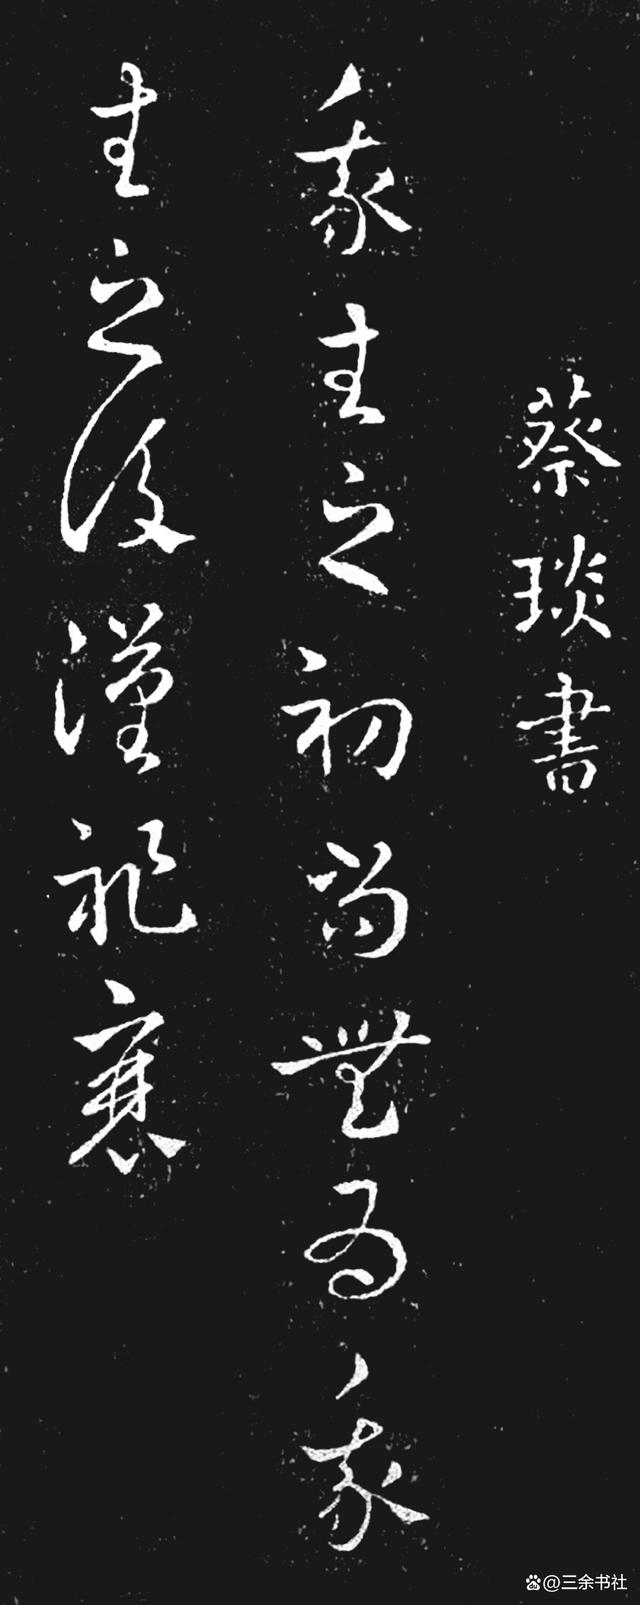 蔡琰書
我生之初尚無為我
生之後漢祚衰
@三余书社